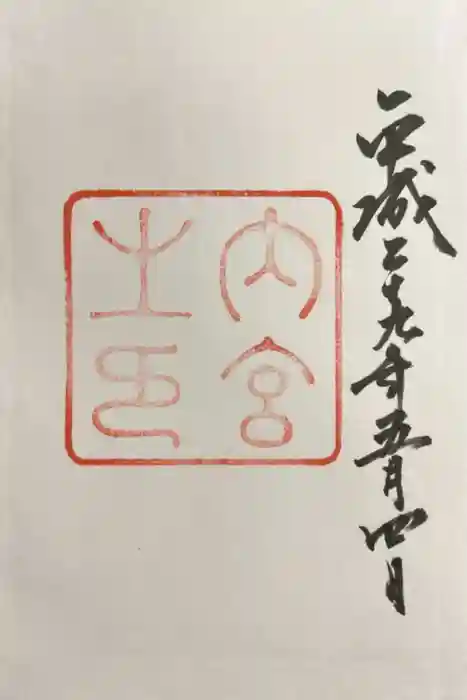 平成二十九年五月四日
内宮
之印